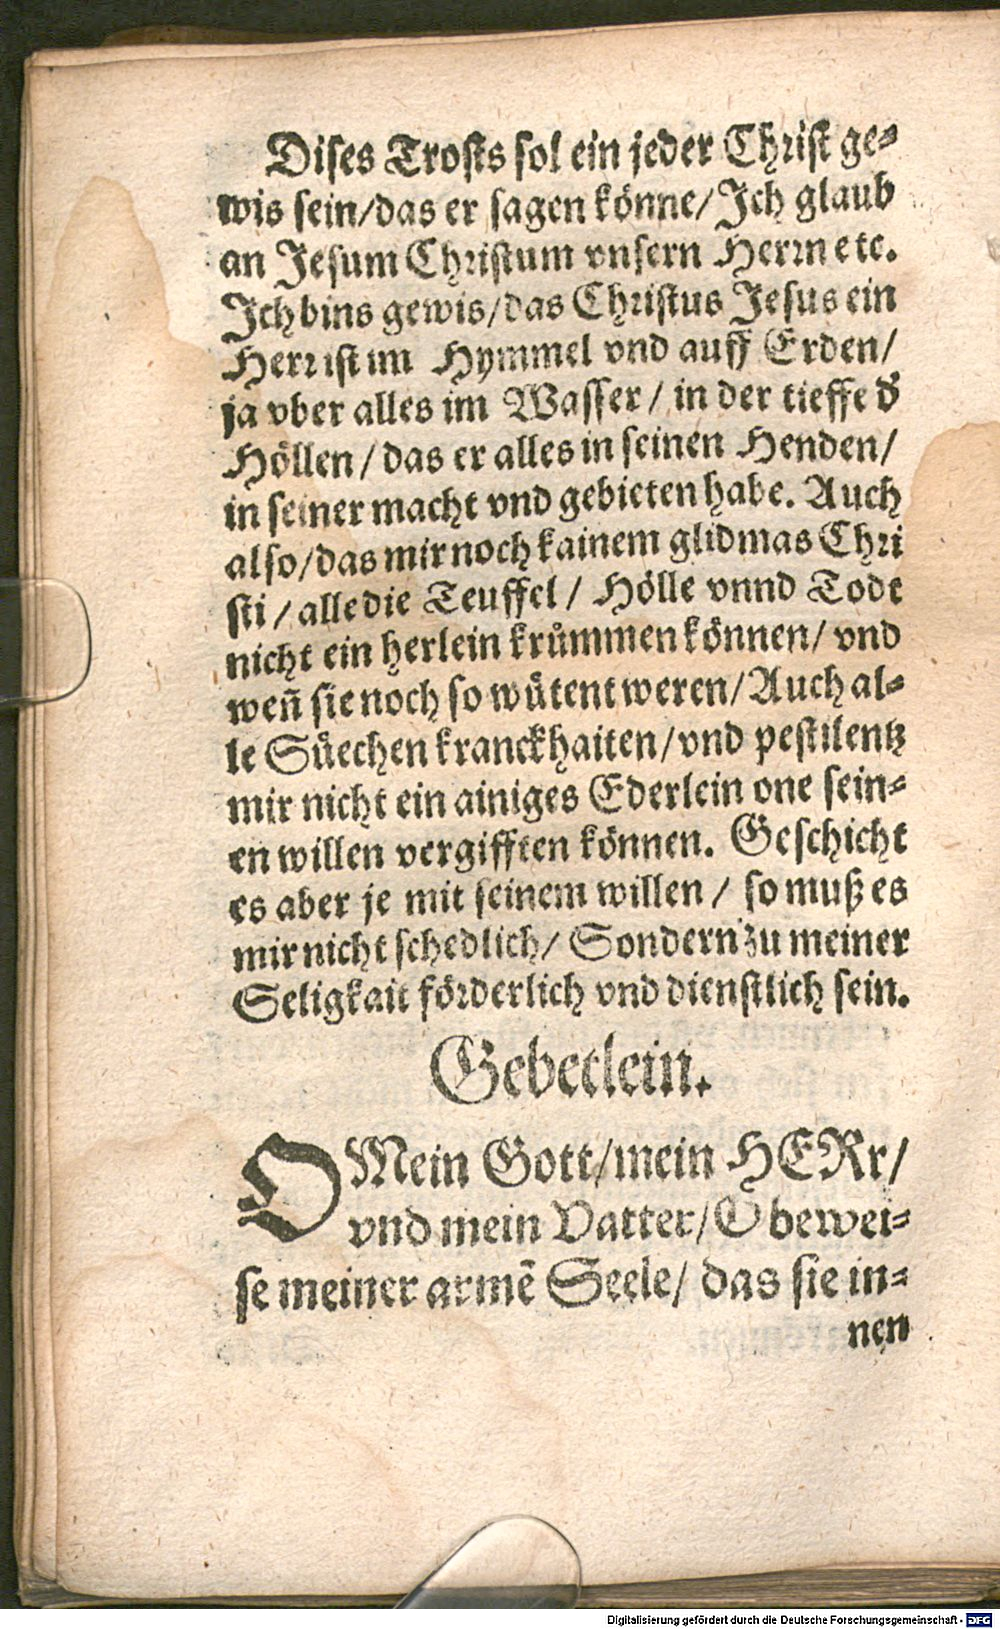 Dises Trosts sol ein jeder Christ ge-
wis sein/das er sagen könne/Jch glaub
an Jesum Christum vnsern Herrn etc.
Jch bins gewis/das Christus Jesus ein
Herr ist im Hymmel vnd auff Erden/
ja vber alles im Wasser/ in der tieffe d'
Höllen/das er alles in seinen Henden/
in seiner macht vnd gebieten habe. Auch
also/das mir noch kainem glidmas Chri
sti/alle die Teuffel/ Hölle vnnd Todt
nicht ein herlein krům̈men können/ vnd
wen̄ sie noch so wůtent weren/Auch al-
le Sůechen kranckhaiten/vnd pestilentz
mir nicht ein ainiges Ederlein one sein-
en willen vergifften können. Geschicht
es aber je mit seinem willen/ so muß es
mir nicht schedlich/ Sondern zu meiner
Seligkait förderlich vnd dienstlich sein.
Gebetlein.
O Mein Gott/mein HERr/
vnd mein Vatter/O bewei-
se meiner armē Seele/ das sie in-
nen
Digitalisierung gefördert durch die Deutsche Forschungsgemeinschaft - DFG